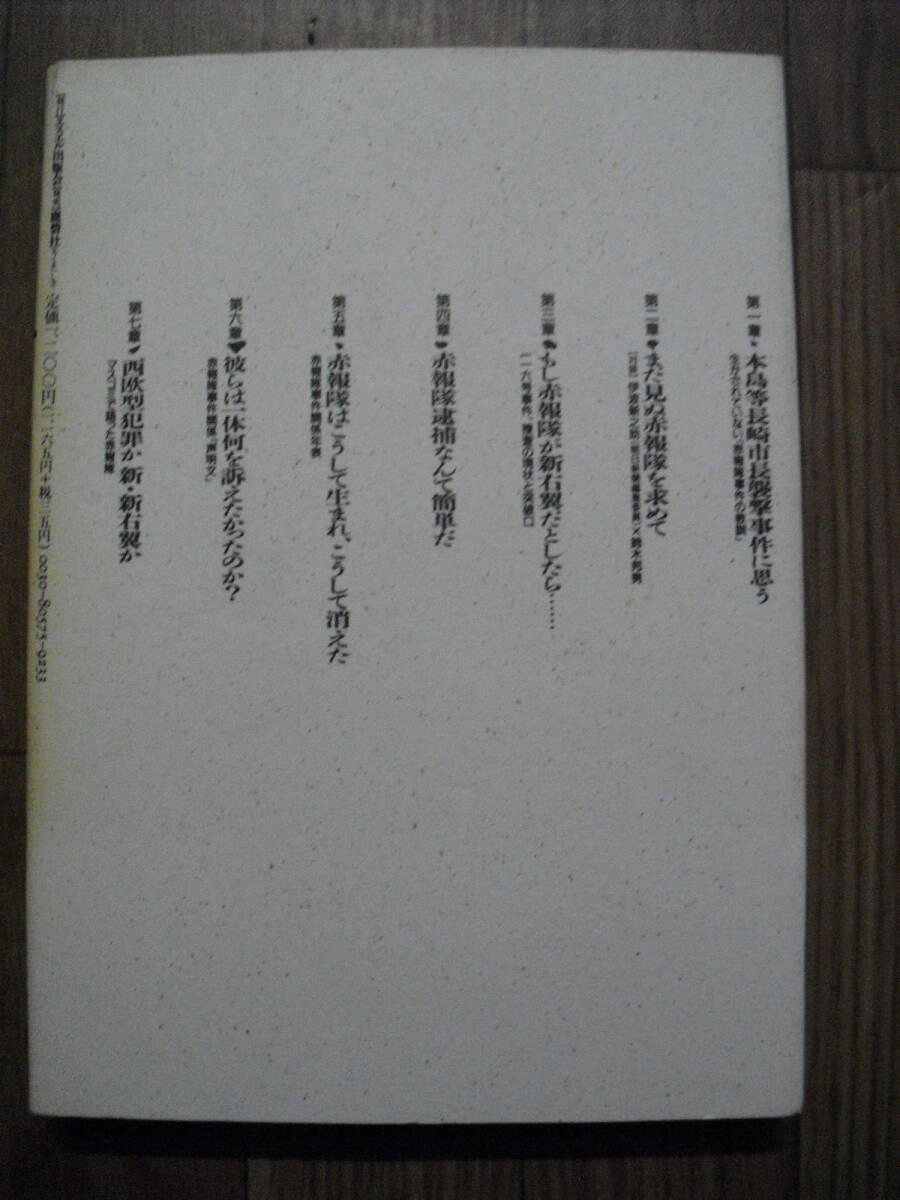 第一章 本島等長崎市長襲撃事件に思う
生かされていない「赤報隊事件の教訓」
第二章 まだ見ぬ赤報隊を求めて
第三章 もし赤報隊が新右翼だとしたら……
一一六号事件、捜査の現状と突破口
第四章 赤報隊逮捕なんて簡単だ
第五章 赤報隊はこうして生まれ、こうして消えた
赤報隊事件関係年表
第六章 彼らは一体何を訴えたかったのか?
赤報隊事件関係「声明文」
第七章 西欧型犯罪か新・新右翼か
マスコミで語った赤報隊
定価一、二〇〇円(一、一六五円+税三五円) 0030-80575-9233